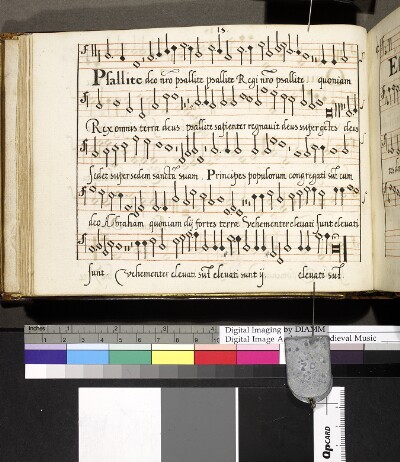 15.
Psallite deo nro psallite psallite Regi nro psallite quoniam
Rex omnis terra deus psallite sapienter regnauit deus super gẽtes deus
sedet super sedem sanctã suam Principes populorum congregati sũt cum
deo Abraham quoniam dij fortes terre Vehementer eleuati sunt eleuati
sunt Vehementer eleuati sũt eleuati sunt ij eleuati sũt
inches 1 2 3 4
Digital Imaging by DIAMM
Digital Image Ar dieval Music
QPCARD